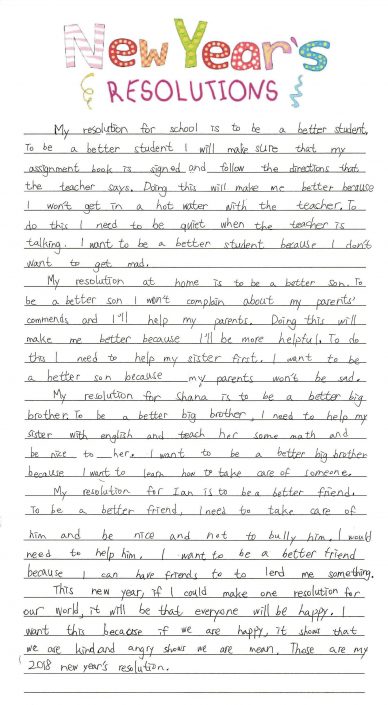 New Year's
RESOLUTIONS
My resolution for school is to be a better student.
To be a better student I will make sure that my
assignment book is signed and follow the directions that
the teacher says. Doing this will make me better because
I won't get in a hot water with the teacher. To
do this I need to be quiet when the teacher is
talking. I want to be a better student because I don't
want to get mad.
My resolution at home is to be a better son. To
be a better son I won't complain about my parents'
commends and I'll help my parents. Doing this will
make me better because I'll be more helpful. To do
this I need to help my sister first. I want to be
a better son because my parents won't be sad.
My resolution for Shana is to be a better big
brother. To be a better big brother, I need to help my
sister with english and teach her some math and
be nice to her. I want to be a better big brother
because I want to learn how to take care of someone.
My resolution for Ian is to be a better friend.
To be a better friend, I need to take care of
him and be nice and not to bully him. I would
need to help him, I want to be a better friend
because I can have friends to to lend me something.
This new year, if I could make one resolution for
our world, it will be that everyone will be happy. I
want this because if we are happy, it shows that
we are kind and angry shows we are mean. Those are my
2018 new year's resolution.